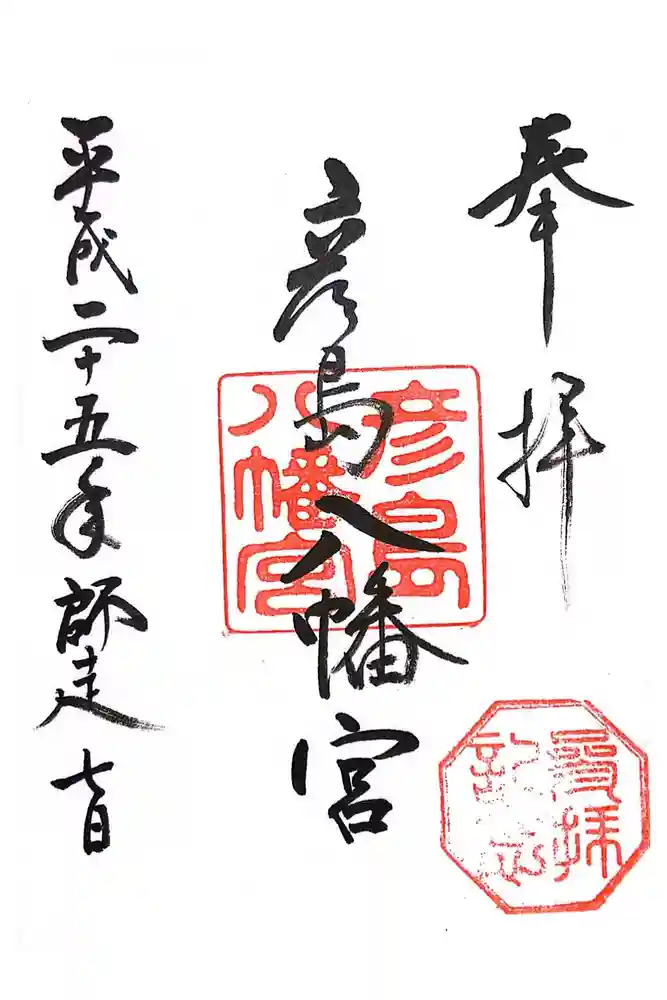 奉拝
彦島八幡宮
彦島
八幡宮
平成二十五年師走七日
登拝
記念